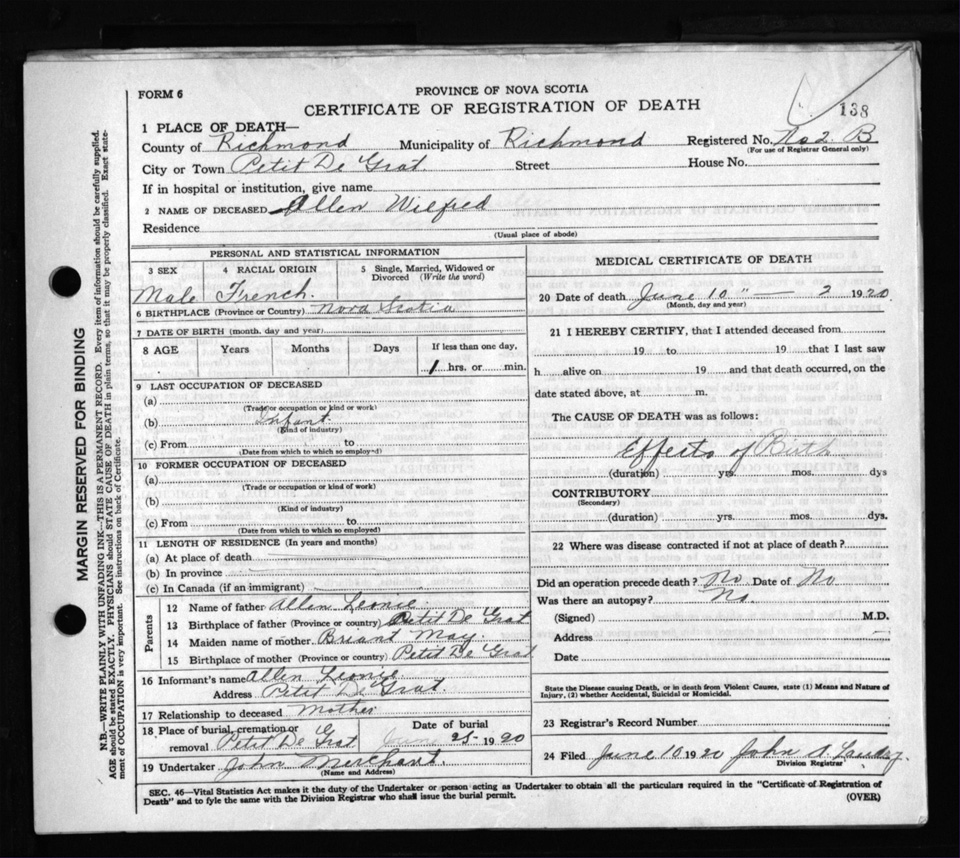 138
FORM 6
PROVINCE OF NOVA SCOTIA
CERTIFICATE OF REGISTRATION OF DEATH
1 PLACE OF DEATH—
County of Richmond Municipality of Richmond Registered No. No 2 B
(For use of Registrar General only)
City or Town Petit De Grat. Street House No.
If in hospital or institution, give name
2 NAME OF DECEASED Allen Wilfred
Residence
(Usual place of abode)
PERSONAL AND STATISTICAL INFORMATION
3 SEX 4 RACIAL ORIGIN 5 Single, Married, Widowed or Divorced (Write the word)
Male French.
6 BIRTHPLACE (Province or Country) Nova Scotia
7 DATE OF BIRTH (month, day and year)
8 AGE Years Months Days If less than one day,
1 hrs. or min.
9 LAST OCCUPATION OF DECEASED
(a)
(Trade or occupation or kind or work)
(b) Infant.
(Kind of industry)
(c) From to
(Date from which to which so employed)
10 FORMER OCCUPATION OF DECEASED
(a)
(Trade or occupation or kind of work)
(b)
(Kind of industry)
(c) From to
(Date from which to which so employed)
11 LENGTH OF RESIDENCE (In years and months)
(a) At place of death
(b) In province
(c) In Canada (if an immigrant)
Parents
12 Name of father Allen Leonie
13 Birthplace of father (Province or country) Petit De Grat
14 Maiden name of mother Briant May.
15 Birthplace of mother (Province or country) Petit De Grat
16 Informant's name Allen Leonie
Address Petit De Grat.
17 Relationship to deceased Mother
18 Place of burial, cremation or removal Petit De Grat Date of burial June 1920
19 Undertaker John Merchant.
(Name and Address)
MEDICAL CERTIFICATE OF DEATH
20 Date of death June 10 " — 2 1920
(Month, day and year)
21 I HEREBY CERTIFY, that I attended deceased from
19 to 19 that I last saw
h alive on 19 and that death occurred, on the
date stated above, at m.
The CAUSE OF DEATH was as follows:
Effects of Birth
(duration) yrs. mos. dys
CONTRIBUTORY
(Secondary)
(duration) yrs. mos. dys.
22 Where was disease contracted if not at place of death?
Did an operation precede death? No Date of No
Was there an autopsy? No.
(Signed) M.D.
Address
Date
State the Disease causing Death, or in death from Violent Causes, state (1) Means and Nature of
Injury, (2) whether Accidental, Suicidal or Homicidal.
23 Registrar's Record Number
24 Filed June 10 1920 John A.
Division Registrar
SEC. 46—Vital Statistics Act makes it the duty of the Undertaker or person acting as Undertaker to obtain all the particulars required in the "Certificate of Registration of
Death" and to fyle the same with the Division Registrar who shall issue the burial permit.
(OVER)
MARGIN RESERVED FOR BINDING
N.B—WRITE PLAINLY WITH UNFADING INK—THIS IS A PERMANENT RECORD. Every item of information should be carefully supplied.
AGE should be stated EXACTLY. PHYSICIANS should STATE CAUSE OF DEATH in plain terms, so that it may be properly classified. Exact state-
ment of OCCUPATION is very important. See instructions on back of Certificate.